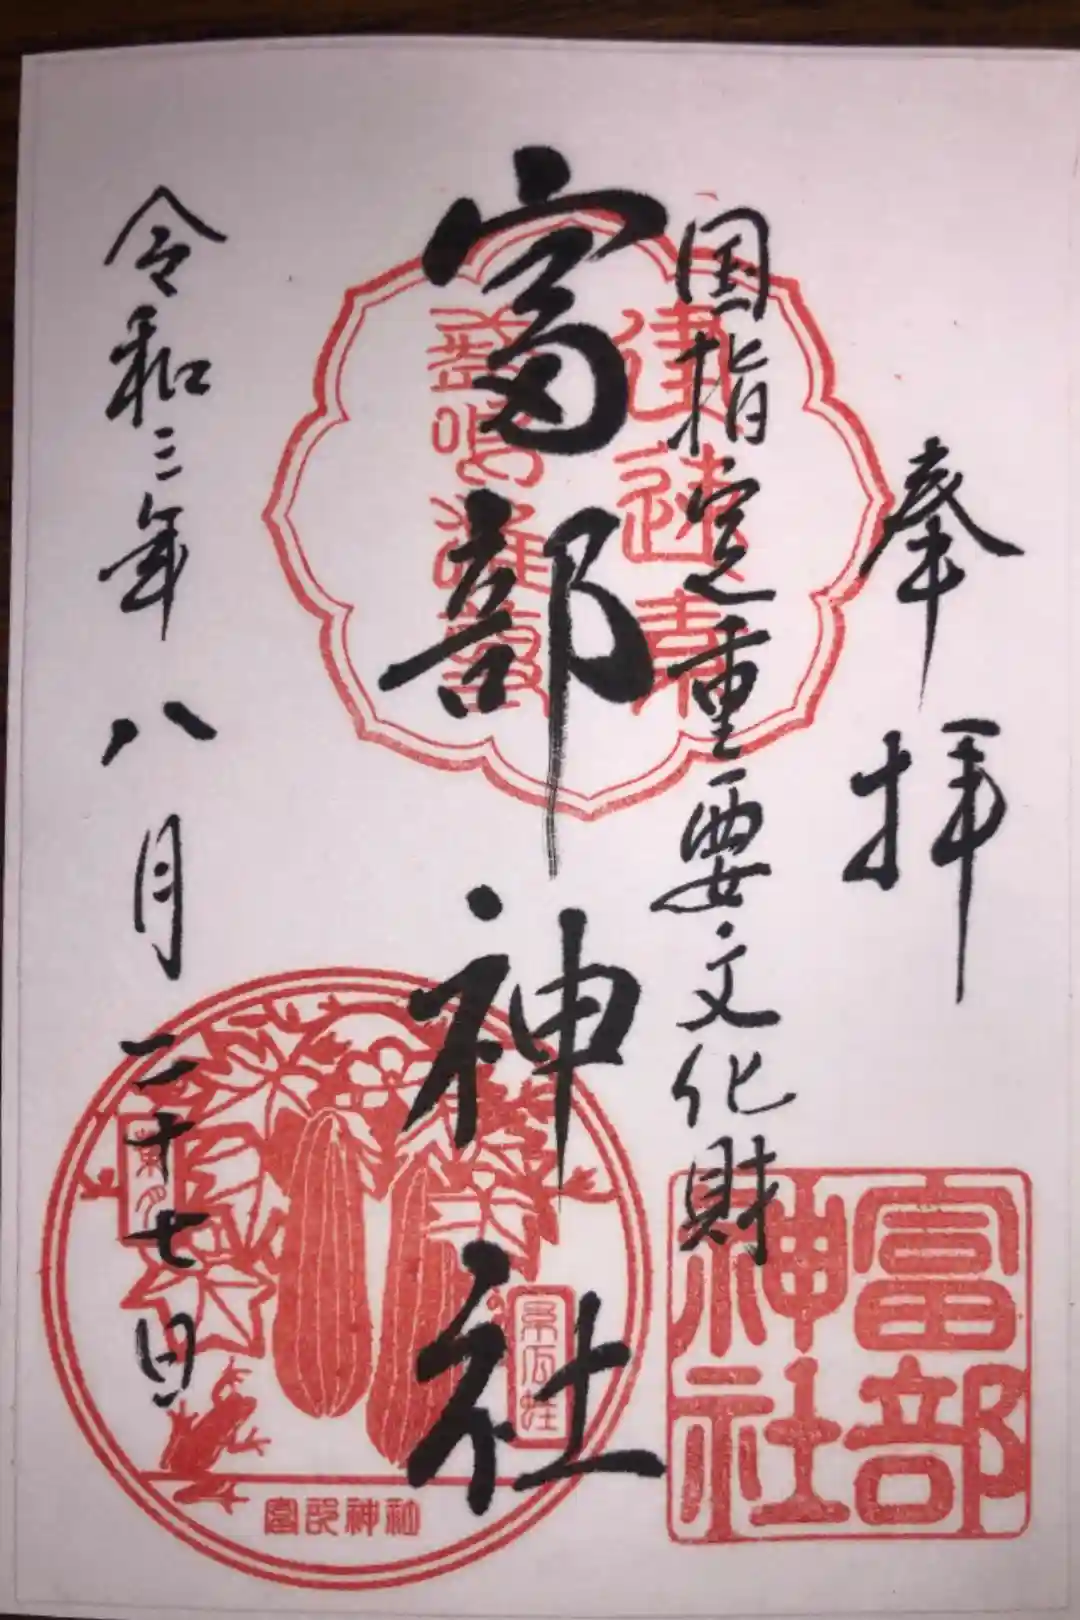 奉拝
国指定重要文化財
富部神社
令和三年八月二十七日
富部
神社
富部神社
糸瓜蛙
葉月